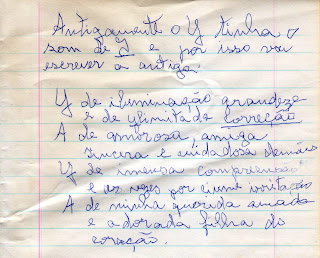 Antigamente o Y tinha o
som de I e por isso vou
escrever a antiga:
Y de iluminação grandeza
e de ylimitada correção
A de amorosa, amiga
sincera e cuidadosa demais
Y de imensa compreensão
e as vezes por ciume irritação
A de minha querida amada
e adorada filha do
coração.